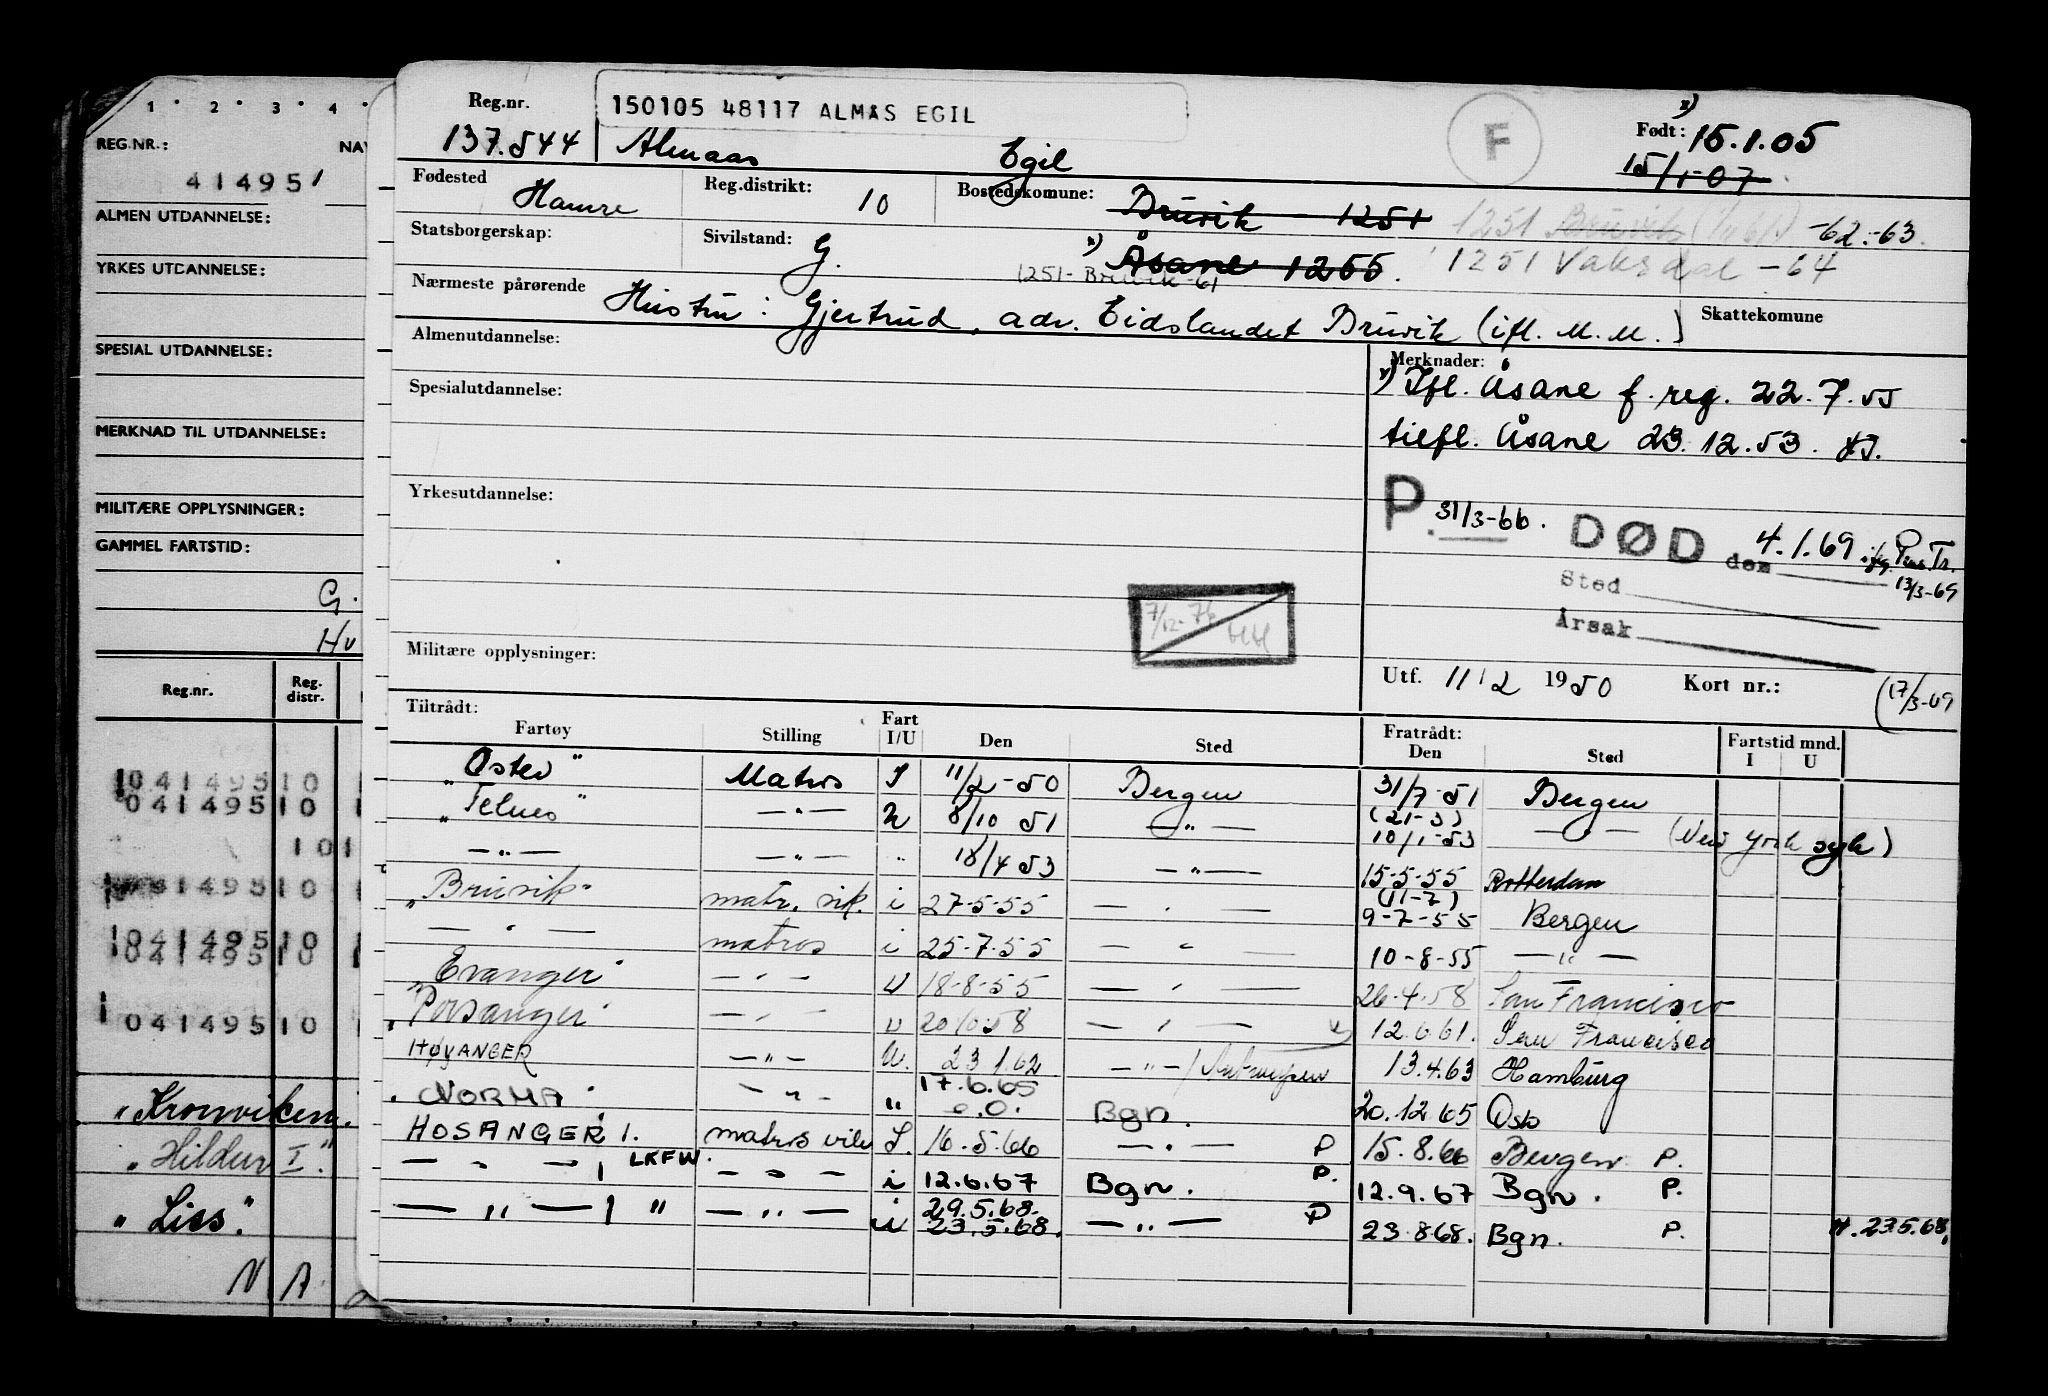 1 · 2 · 3 · 4 ·
REG.NR.: NAV
414951
ALMEN UTDANNELSE:
YRKES UTDANNELSE:
SPESIAL UTDANNELSE:
MERKNAD TIL UTDANNELSE:
MILITÆRE OPPLYSNINGER:
GAMMEL FARTSTID:
G.
Hu
Reg.nr. Reg. distr.
10414951 0
0414951 0
1 0 1
41495 1 0
1041495 1 0
041495 1 0
041495 1 0
"Kronviken"
"Hildur I."
"Liss".
N A.
Reg.nr. 150105 48117 ALMÅS EGIL F Født: x) 15.1.05
137.544 Almaas Egil 15/1-07
Fødested Hamre Reg.distrikt: 10 Bostedskomune: Bruvik - 1251 1251 Bruvik -62-63.
Statsborgerskap: Sivilstand: G. x) Åsane 1255. 1251 Vaksdal -64
1251- Bruvik -61
Nærmeste pårørende Hustru: Gjertrud, adr. Eidslandet Bruvik (ifl. M.M.) Skattekomune
Almenutdannelse: Merknader:
x) Ifl. Åsane f. reg. 22.7.55
Spesialutdannelse:
tilfl. Åsane 23.12.53.
Yrkesutdannelse: P. 31/3-66. DØD den 4.1.69 ifg. Pens.Tr. 13/3-69
Sted
7/12-76
Årsak
Militære opplysninger:
Utf. 11/2 1950 Kort nr.: (17/3-69
Tiltrådt: Fratrådt:
Fartøy Stilling Fart I/U Den Sted Den Sted Fartstid mnd. I U
"Oster" Matros I 11/2-50 Bergen 31/7-51 Bergen
"Telnes" —"— U 8/10 51 —"— (21-3) 10/1-53 —"— (New York syk)
—"— —"— " 18/4 53 —"— 15-5-55 Rotterdam
"Bruvik" matr. vik. i 27-5-55 — " — (11-7) 9-7-55 Bergen
— " — matros i 25-7-55 — " — 10-8-55 —"—
"Evanger" —"— U 18-8-55 — " — 26-4-58 San Francisco
"Porsanger" —"— U 20/10 58 — " — 12.6.61. San Francisco
HØYANGER —"— U. 23 1.62 —"—/Antwerpen 13.4.63 Hamburg
"NORMA" —"— " 17.6.65 o.o. Bgn. 20.12.65 Oslo
HOSANGER /. matros vik I. 16.5.66 —"— P 15.8.66 Bergen P.
— " — / LKFW. —"— i 12.6.67 Bgn. P. 12.9.67 Bgn. P.
— " — / " —"— i 29.5.68.
u 23.5.68. —"— P 23.8.68. Bgn. P. 23.5.68,